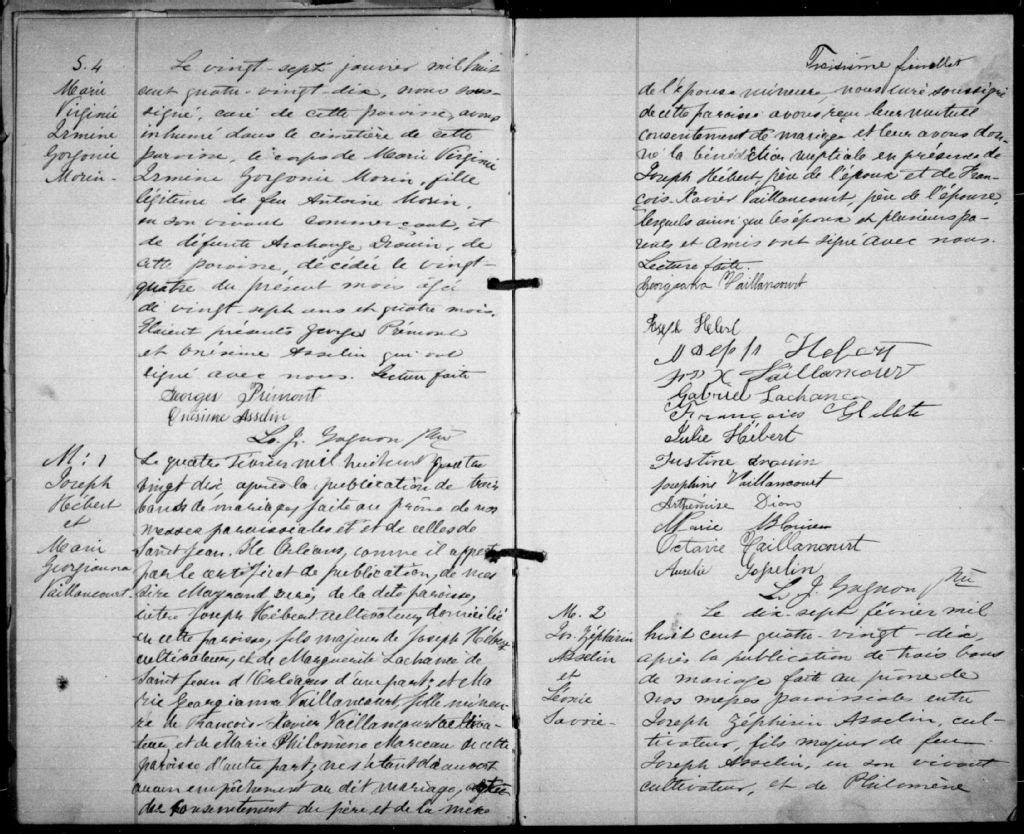 S. 4
Marie
Virginie
Ermine
Gorgonie
Morin.
Le vingt-sept janvier mil huit
cent quatre-vingt-dix, nous sous-
signé, curé de cette paroisse, avons
inhumé dans le cimetière de cette
paroisse, le corps de Marie Virginie
Ermine Gorgonie Morin, fille
légitime de feu Antoine Morin,
en son vivant commerçant, et
de défunte Archange Drouin, de
cette paroisse, décédée le vingt-
quatre du présent mois âgée
de vingt-sept ans et quatre mois.
Etaient présents Georges Prémont
et Onésime Asselin qui ont
signé avec nous. Lecture faite
Georges Prémont
Onésime Asselin
L. J. Gagnon Ptre
M: 1
Joseph
Hébert
et
Marie
Georgianna
Vaillancourt.
Le quatre Février mil huit cent quatre
vingt dix après la publication de trois
bancs de mariage, faite au prône de nos
messes paroissiales et et de celles de
Saint Jean, Ile Orléans, comme il appert
par le certificat de publication, de mes
sire Maynard Curé de la dite paroisse,
entre Joseph Hébert cultivateur, domicilié
en cette paroisse, fils majeur de Joseph Hébert
cultivateur, et de Marguerite Lachance de
Saint Jean d'Orléans d'une part; et Ma
rie Georgianna Vaillancourt, fille mineu
re de Francois-Xavier Vaillancourt cultiva-
teur, et de Marie Philomène Marceau de cette
paroisse d'autre part; ne s'étant découvert
aucun empêchement au dit mariage,
du consentement du père et de la mère
Troisième feuillet
de l'épouse mineure, nous curé soussigné
de cette paroisse avons reçu leur mutuel
consentement de mariage et leur avons don-
né la bénédiction nuptiale en présence de
Joseph Hébert, père de l'époux et de Fran-
çois-Xavier Vaillancourt, père de l'épouse,
lesquels ainsi que les époux et plusieurs pa-
rents et amis ont signé avec nous.
Lecture faite.
Georgeanna Vaillancourt
Joseph Hebert
Joseph Hebert
X Vaillancourt
Gabriel Lachance
François
Julie Hébert
Justine Drouin
Josephine Vaillancourt
Arthémise Dion
Marie
Octavie Vaillancourt
Aurelie Gosselin
L. J. Gagnon Ptre
M. 2
Jos. Zéphirin
Asselin
et
Léonie
Savoie.
Le dix-sept février mil
huit cent quatre-vingt-dix,
après la publication de trois bans
de mariage faite au prône de
nos messes paroissiales entre
Joseph Zéphirin Asselin, cul-
tivateur, fils majeur de feu
Joseph Asselin, en son vivant
cultivateur, et de Philomène